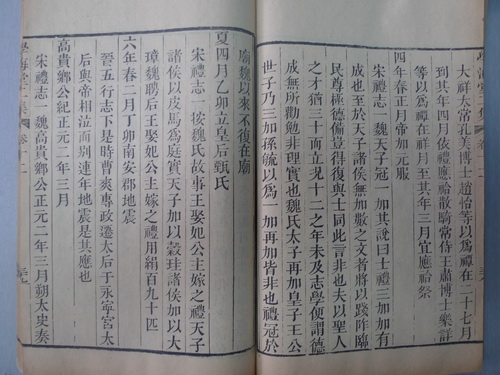 大祥太常孔美博士趙怡等以爲禫在二十七月
到其年四月依禮應祫散騎常侍王肅博士樂詳
等以爲禫在祥月至其年三月宜應祫祭
四年春正月帝加元服
宋禮志一 魏天子冠一加其說曰士禮三加加有
成也至於天子諸侯無加數之文者將以踐阼臨
民尊極德備豈得復與士同此言非也夫以聖人
之才猶三十而立况十二之年未及志學便謂德
成無所勸勉非理實也魏氏太子再加皇子王公
世子乃三加孫毓以爲一加再加皆非也禮冠於
廟魏以來不復在廟
夏四月乙卯立皇后甄氏
宋禮志一 按魏氏故事王娶妃公主嫁之禮天子
諸侯以皮馬爲庭實天子加以穀珪諸侯加以大
璋魏聘后王娶妃公主嫁之禮用絹百九十匹
六年春二月丁卯南安郡地震
晉五行志下 是時曹爽專政遷太后于永寧宮太
后與帝相泣而别連年地震是其應也
高貴鄉公紀正元二年三月
宋禮志一 魏高貴鄉公正元二年三月朔太史奏